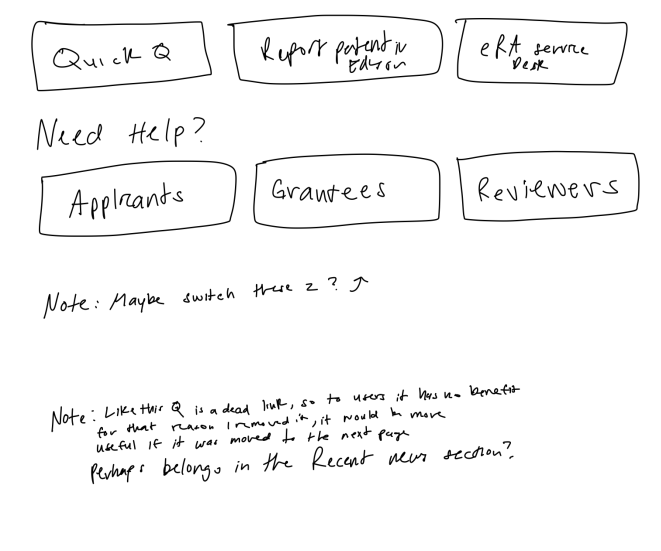 Quick Q
Report patent in
Edison
eRA service
Desk
Need Help?
Applicants
Grantees
Reviewers
Note: Maybe switch these 2? ↑
Note: Like this Q is a dead link, so to users it has no benefit
for that reason I removed it, it would be more
useful if it was moved to the next page
Perhaps belongs in the Recent news section?